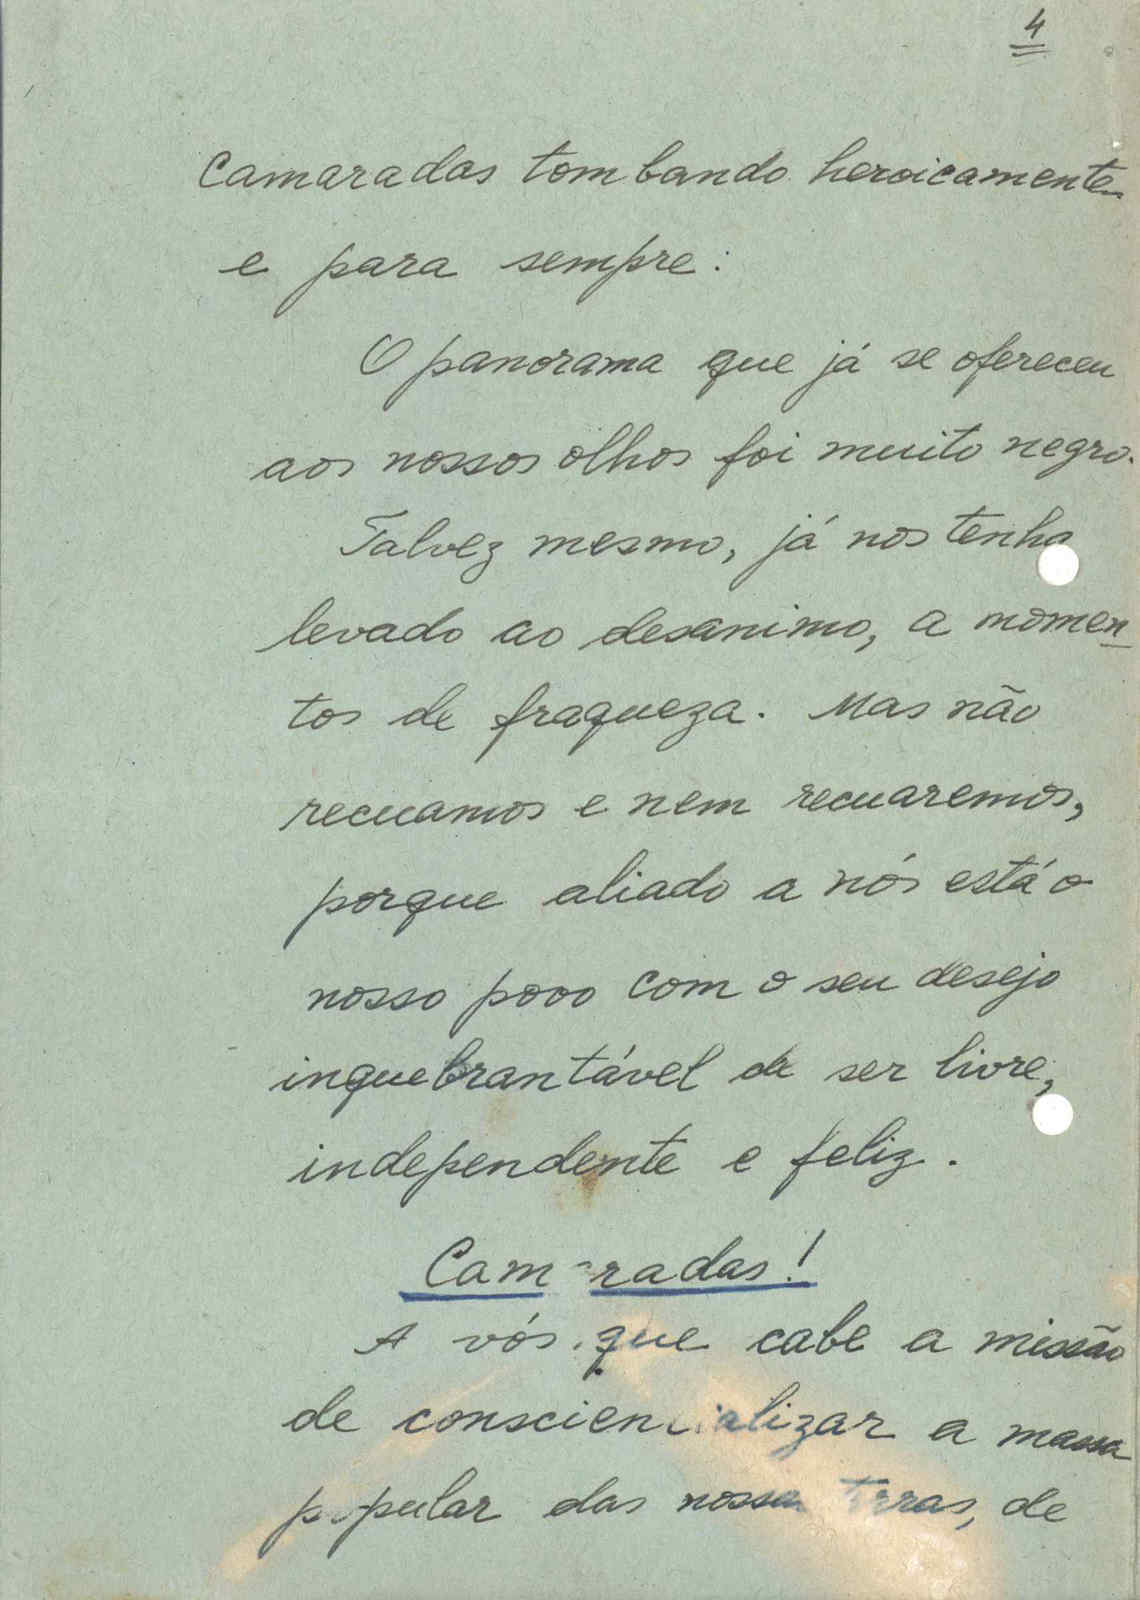 4
Camaradas tombando heroicamente
e para sempre:
O panorama que já se ofereceu
aos nossos olhos foi muito negro.
Talvez mesmo, já nos tenha
levado ao desanimo, a momen-
tos de fraqueza. Mas não
recuamos e nem recuaremos,
porque aliado a nós está o
nosso povo com o seu desejo
inquebrantável de ser livre,
independente e feliz.
Camaradas!
A vós que cabe a missão
de consciencializar a massa
popular das nossas terras, de